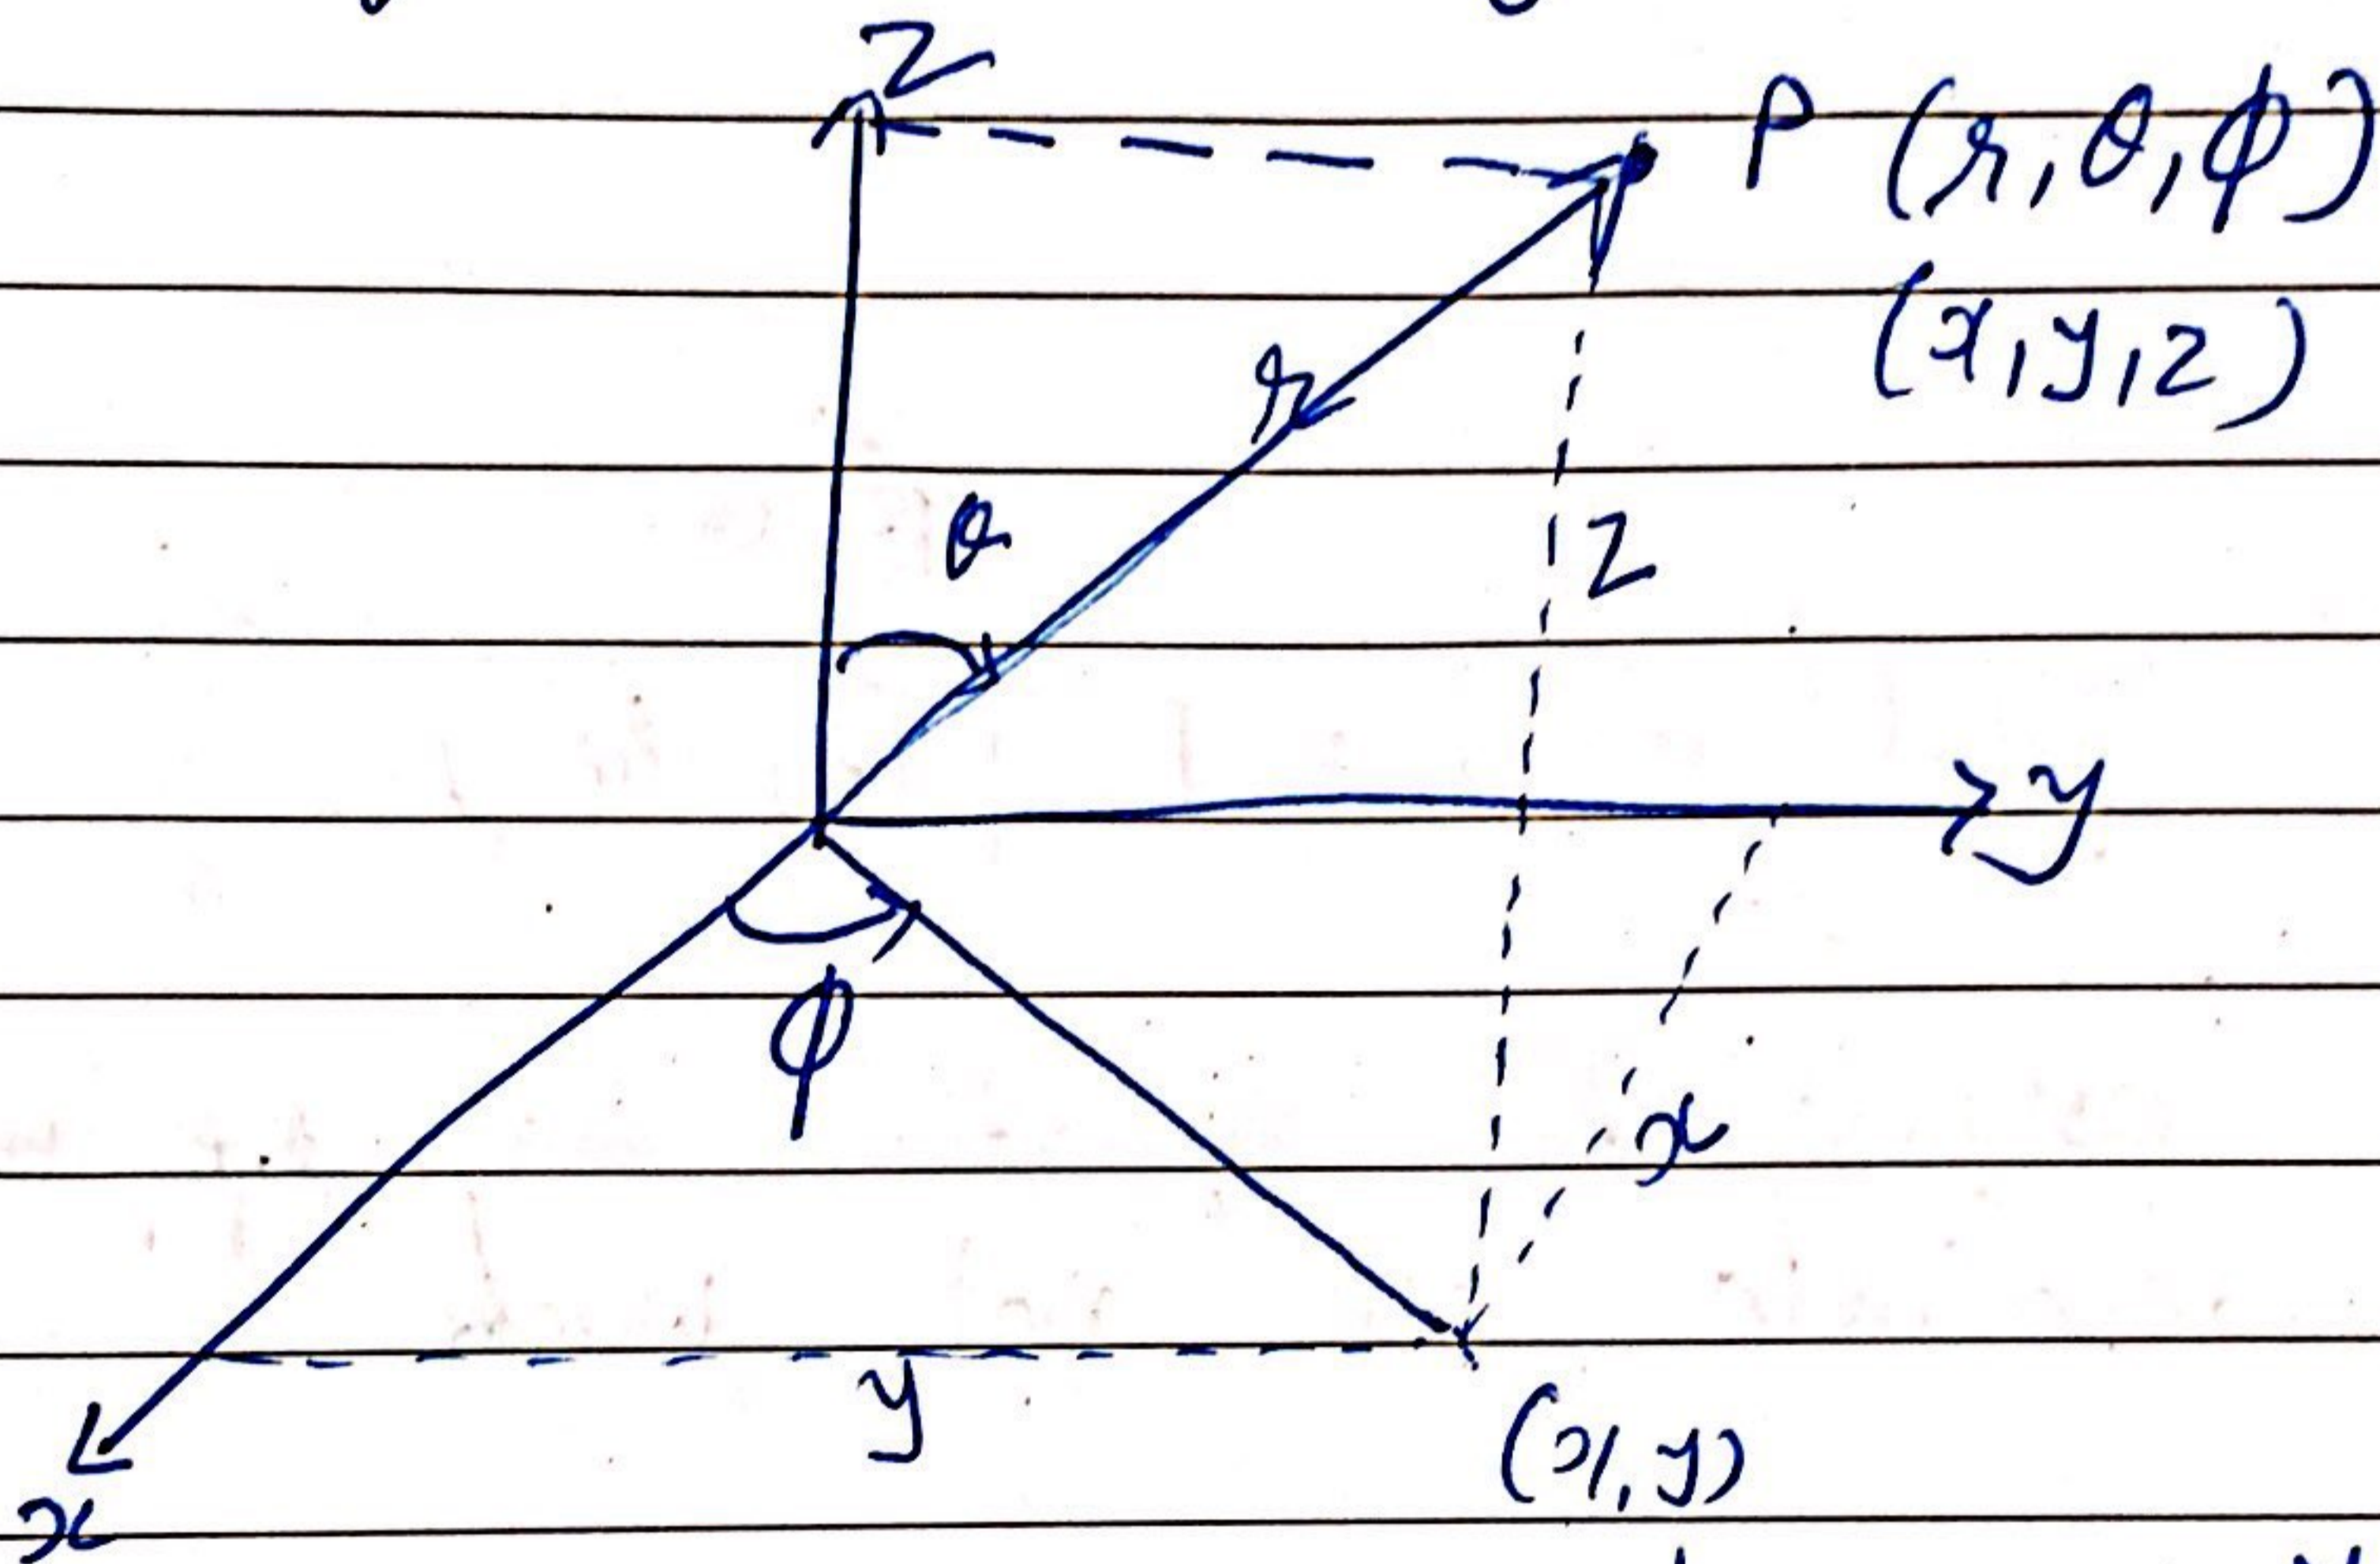 Z
P (r, θ, ϕ)
(x, y, z)
r
θ
Z
y
ϕ
x
y
(x, y)
x